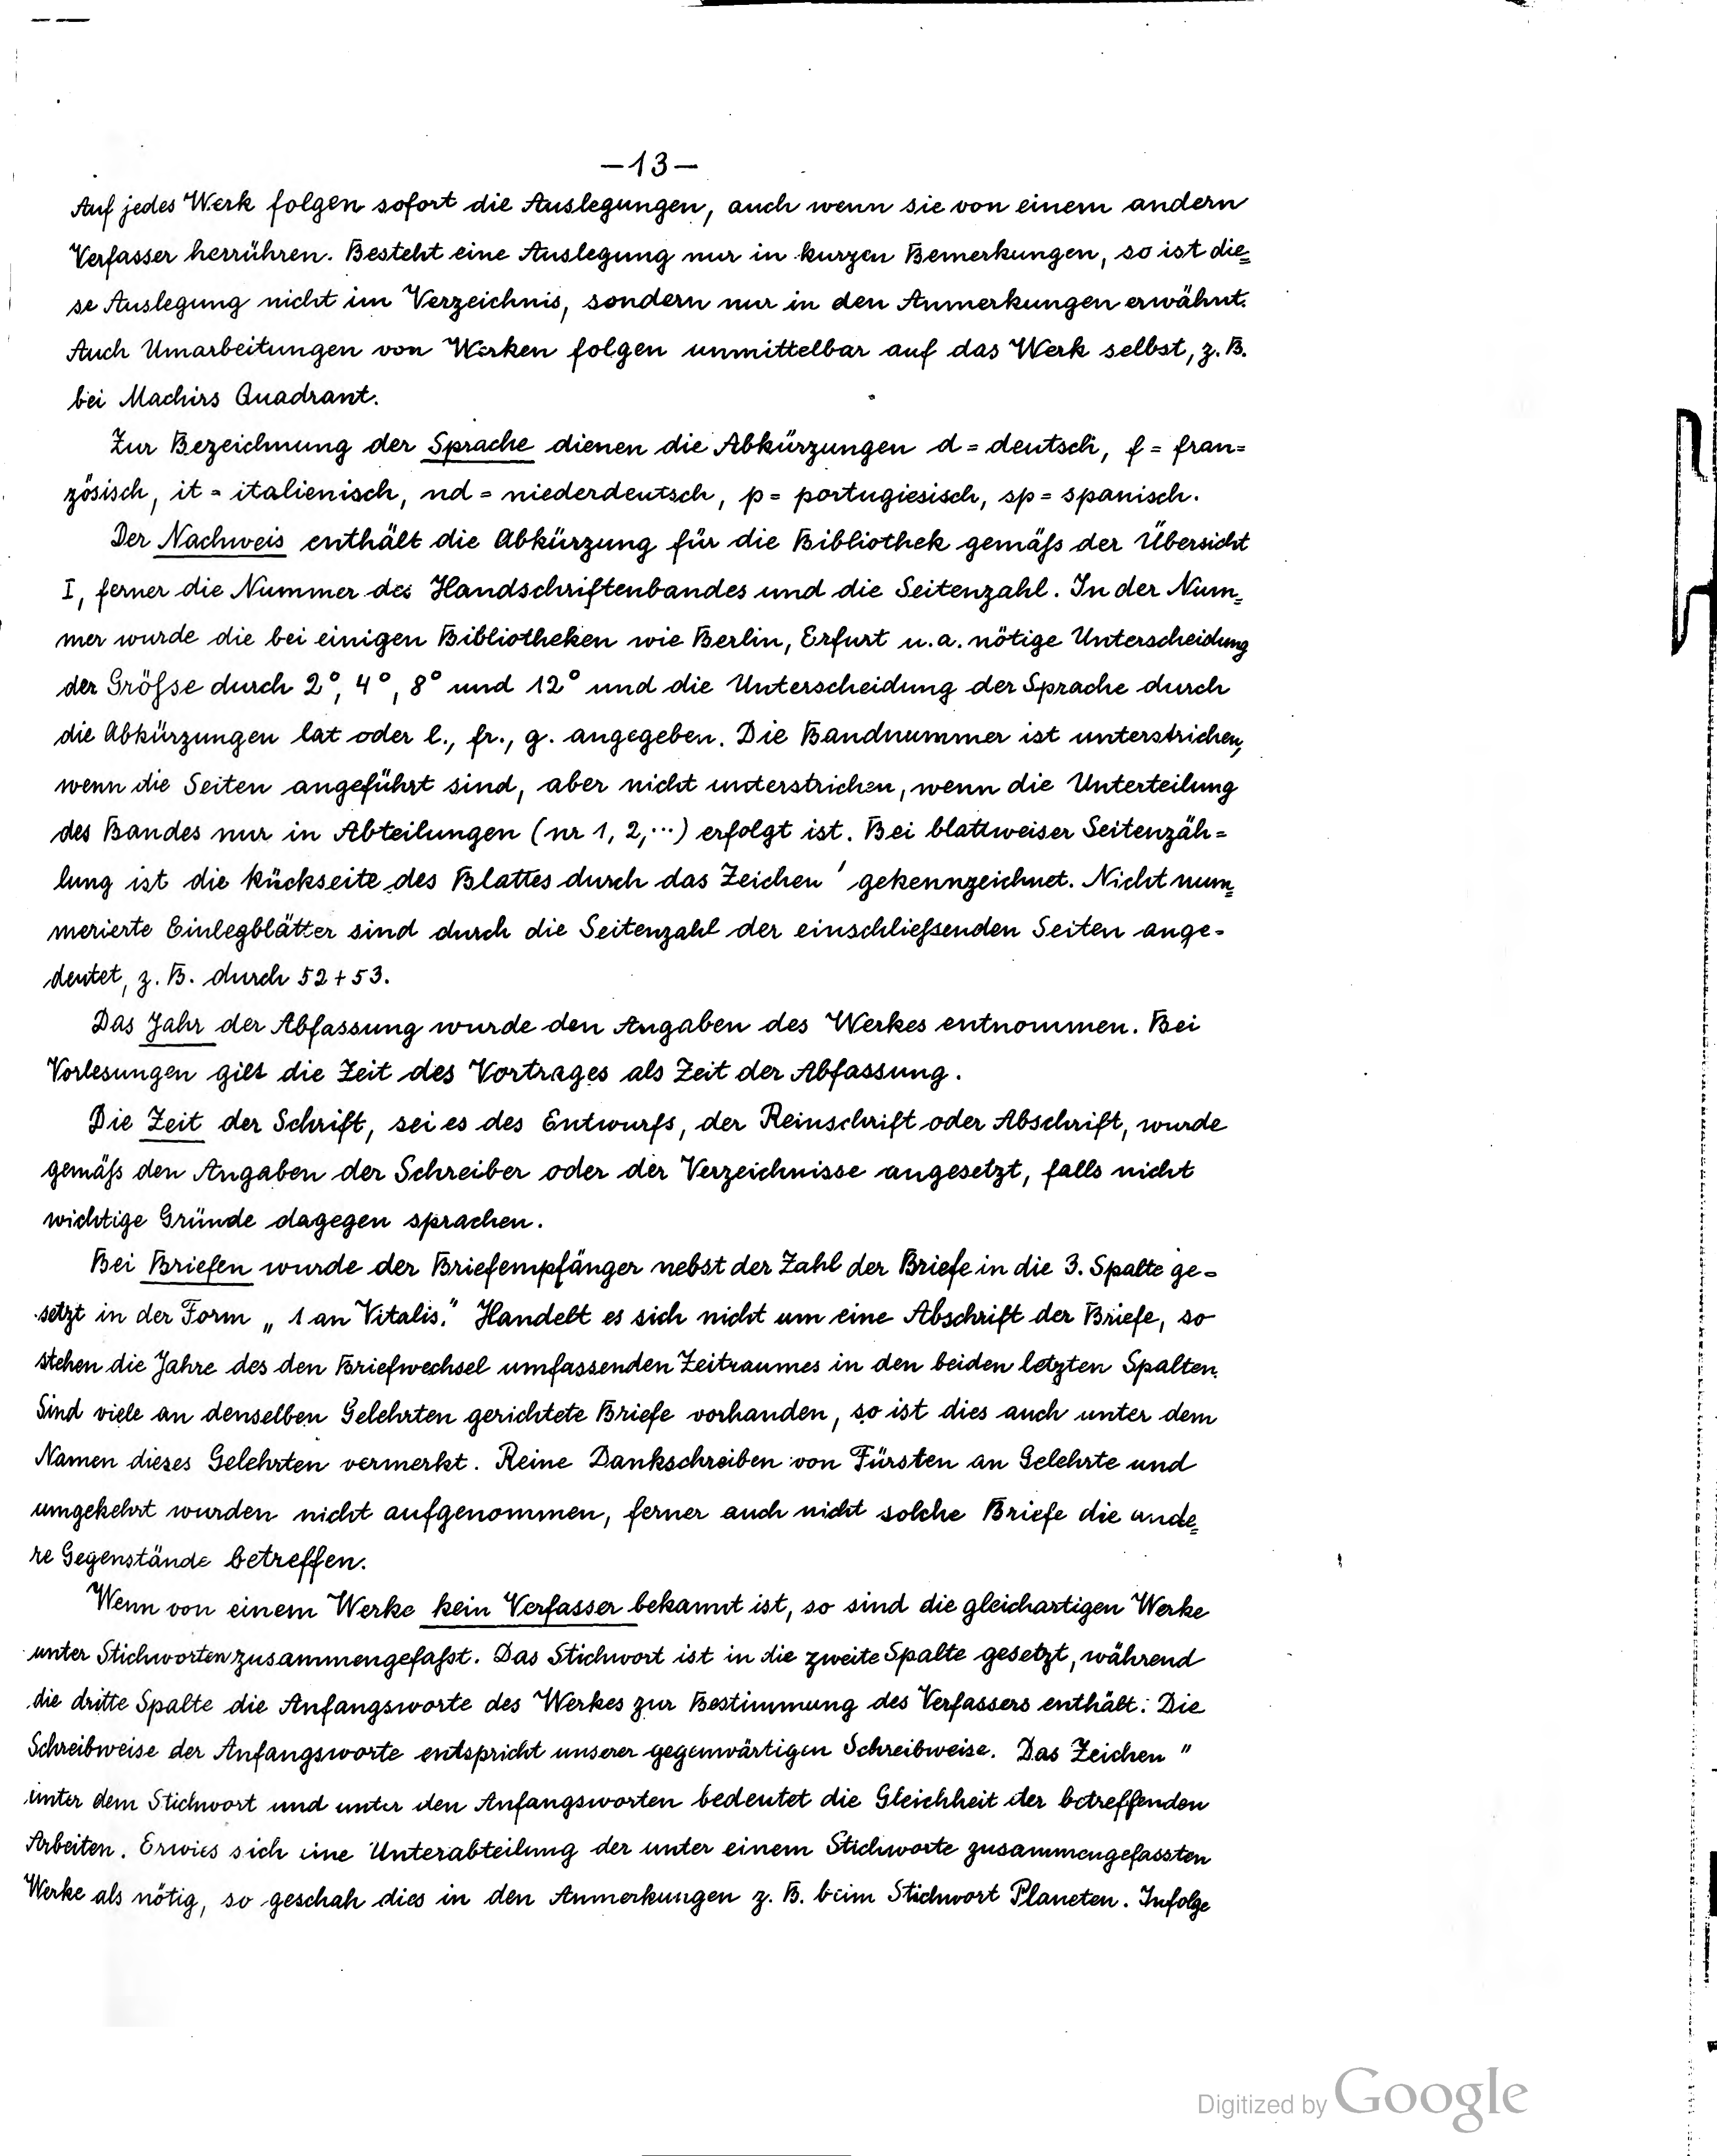 —13—
Auf jedes Werk folgen sofort die Auslegungen, auch wenn sie von einem andern
Verfasser herrühren. Besteht eine Auslegung nur in kurzen Bemerkungen, so ist die=
se Auslegung nicht im Verzeichnis, sondern nur in den Anmerkungen erwähnt.
Auch Umarbeitungen von Werken folgen unmittelbar auf das Werk selbst, z. B.
bei Machirs Quadrant.
Zur Bezeichnung der Sprache dienen die Abkürzungen d = deutsch, f = fran=
zösisch, it = italienisch, nd = niederdeutsch, p = portugiesisch, sp = spanisch.
Der Nachweis enthält die Abkürzung für die Bibliothek gemäß der Übersicht
I, ferner die Nummer des Handschriftenbandes und die Seitenzahl. In der Num=
mer wurde die bei einigen Bibliotheken wie Berlin, Erfurt u. a. nötige Unterscheidung
der Größe durch 2°, 4°, 8° und 12° und die Unterscheidung der Sprache durch
die Abkürzungen lat oder l., fr., g. angegeben. Die Bandnummer ist unterstrichen,
wenn die Seiten angeführt sind, aber nicht unterstrichen, wenn die Unterteilung
des Bandes nur in Abteilungen (nr 1, 2,...) erfolgt ist. Bei blattweiser Seitenzäh=
lung ist die Rückseite des Blattes durch das Zeichen ' gekennzeichnet. Nicht num=
merierte Einlegblätter sind durch die Seitenzahl der einschließenden Seiten ange=
deutet, z. B. durch 52+53.
Das Jahr der Abfassung wurde den Angaben des Werkes entnommen. Bei
Vorlesungen gilt die Zeit des Vortrages als Zeit der Abfassung.
Die Zeit der Schrift, sei es des Entwurfs, der Reinschrift oder Abschrift, wurde
gemäß den Angaben der Schreiber oder der Verzeichnisse angesetzt, falls nicht
wichtige Gründe dagegen sprachen.
Bei Briefen wurde der Briefempfänger nebst der Zahl der Briefe in die 3. Spalte ge=
setzt in der Form „1 an Vitalis." Handelt es sich nicht um eine Abschrift der Briefe, so
stehen die Jahre des den Briefwechsel umfassenden Zeitraumes in den beiden letzten Spalten.
Sind viele an denselben Gelehrten gerichtete Briefe vorhanden, so ist dies auch unter dem
Namen dieses Gelehrten vermerkt. Reine Dankschreiben von Fürsten an Gelehrte und
umgekehrt wurden nicht aufgenommen, ferner auch nicht solche Briefe die ande=
re Gegenstände betreffen.
Wenn von einem Werke kein Verfasser bekannt ist, so sind die gleichartigen Werke
unter Stichworten zusammengefaßt. Das Stichwort ist in die zweite Spalte gesetzt, während
die dritte Spalte die Anfangsworte des Werkes zur Bestimmung des Verfassers enthält. Die
Schreibweise der Anfangsworte entspricht unserer gegenwärtigen Schreibweise. Das Zeichen "
unter dem Stichwort und unter den Anfangsworten bedeutet die Gleichheit der betreffenden
Arbeiten. Erwies sich eine Unterabteilung der unter einem Stichworte zusammengefassten
Werke als nötig, so geschah dies in den Anmerkungen z. B. beim Stichwort Planeten. Infolge
Digitized by Google